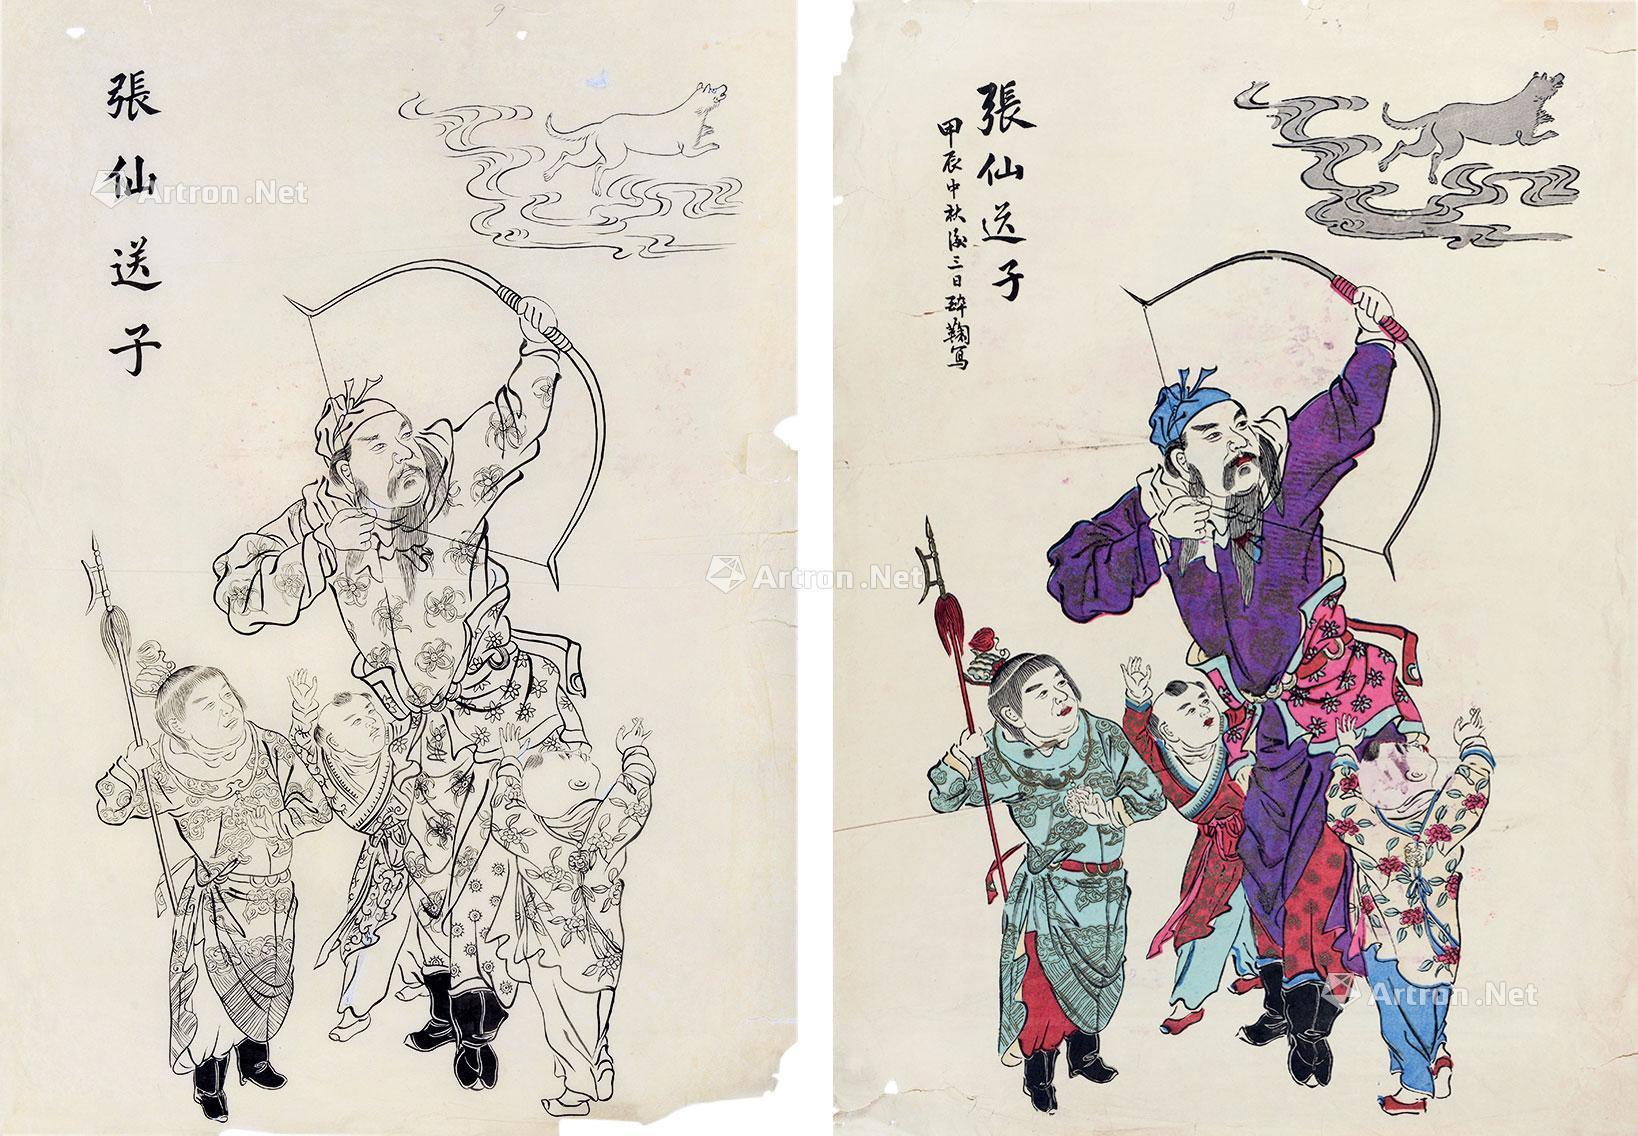 張仙送子
張仙送子
甲辰中秋後三日醉鞠寫
Artron.Net
Artron.Net
Artron.Net